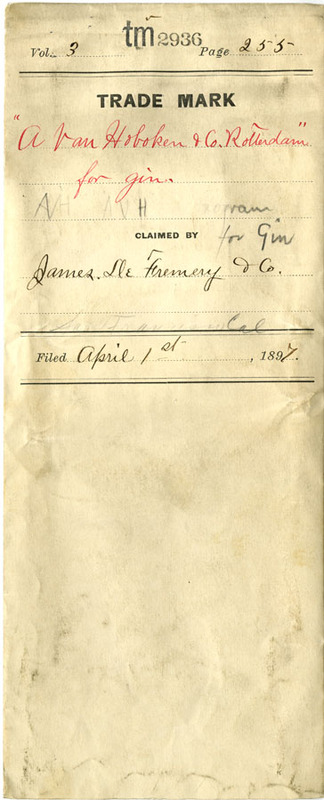 tm 2936
Vol. 3 Page 255
TRADE MARK
"A Van Hoboken & Co. Rotterdam"
for gin.
AVH
CLAIMED BY
for Gin
James De Fremery & Co.
Cal
Filed April 1st, 1897.